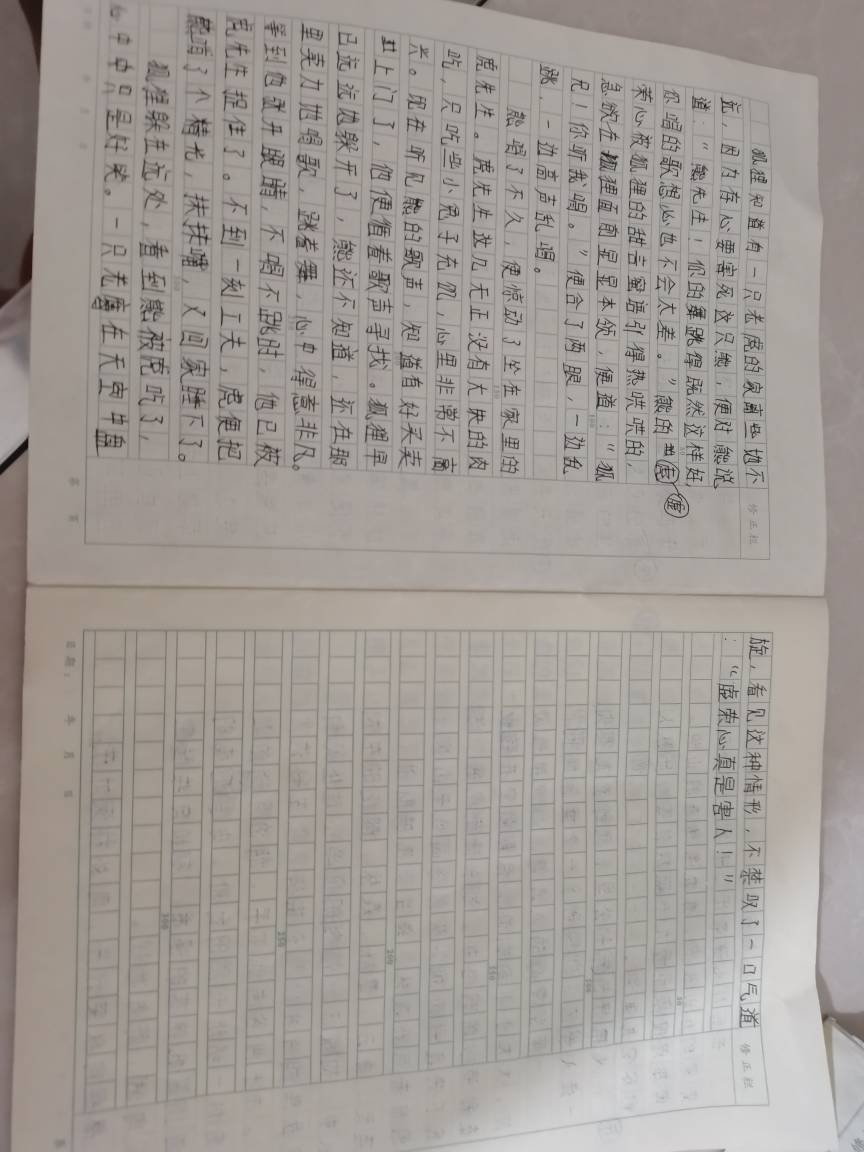 狐狸知道有一只老虎的家离此边不
远，因为存心要害死这只熊，便对熊说
道："熊先生！你的舞跳得既然这样好，
你唱的歌想必也不会太差。"熊的虚
虚
荣心被狐狸的甜言蜜语引得热哄哄的，
急欲在狐狸面前显显本领，便道："狐
兄！你听我唱。"便合了两眼，一边乱
跳，一边高声乱唱。
熊唱了不久，便惊动了坐在家里的
虎先生。虎先生这几天正没有大块的肉
吃，只吃些小兔子充饥，心里非常不高
兴。现在听见熊的歌声，知道有好买卖
上门了，他便循着歌声寻找。狐狸早
已远远地躲开了，熊还不知道，还在那
里卖力地唱歌，跳着舞，心中得意非凡。
等到他张开眼睛，不唱不跳时，他已被
虎先生捉住了。不到一刻工夫，虎便把
熊啃了个精光，扶扶嘴，又回家睡下了。
狐狸躲在远处，看到熊被虎吃了，
心中只是好笑。一只老鹰在天空中盘
第 页
修正栏
旋，看见这种情形，不禁叹了一口气道
："虚荣心真是害人！"
修正栏
50
100
150
200
250
300
日期： 年 月 日